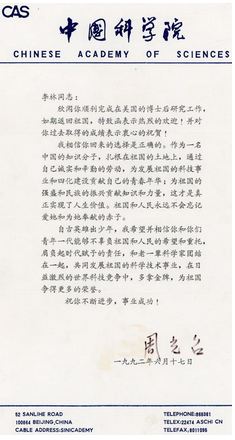 CAS
中国科学院
CHINESE ACADEMY OF SCIENCES
李林同志：
欣闻你顺利完成在美国的博士后研究工作，
如期返回祖国，特致函表示热烈的欢迎！并对
你过去取得的成绩表示衷心的祝贺！
我相信你回来的选择是正确的。作为一名
中国的知识分子，扎根在祖国的土地上，通过
自己诚实和辛勤的劳动，为发展祖国的科技事
业和四化建设贡献自己的青春年华；为祖国的
强盛和民族的振兴贡献知识和力量，这才是真
正实现了人生价值。祖国和人民永远不会忘记
爱她和为她奉献的赤子。
自古英雄出少年，我希望并相信你和你们
青年一代能够不辜负祖国和人民的希望和重托，
肩负起时代赋予的责任，和老一辈科学家团结
在一起，共同发展祖国的科学技术事业，在日
益激烈的世界科技竞争中，多拿金牌，为祖国
争得更多的荣誉。
祝你不断进步，事业成功！
周光召
一九九二年六月十七日
52 SANLIHE ROAD
100864 BEIJING,CHINA
CABLE ADDRESS:SINICADEMY
TELEPHONE:868361
TELEX:22474 ASCHI CN
TELEFAX:8011095